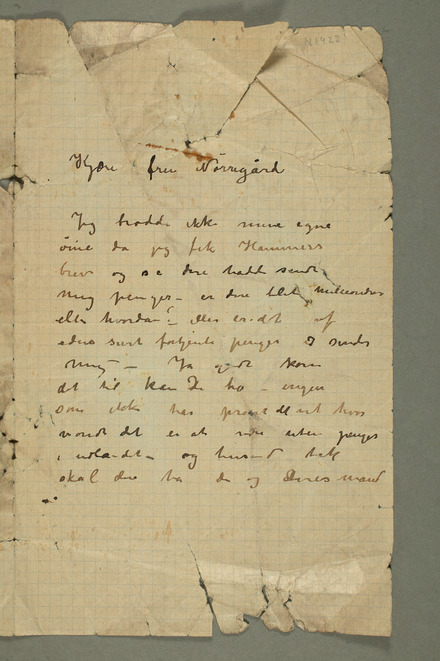 N 1922
Kjære fru Nörregård
Jeg trodde ikke mine egne
öine da jeg fik Hammers
brev og så dere hadde sendt
mig penger – er dere blet millionærer
eller hvordan? – Eller er det af
eders surt fortjente penger I sender
mig – Ja godt kom
det til kan De tro – ingen
som ikke har prøvet det vet hvor
vondt det er at være uten penger
i udlandet – og tusend tak
skal dere ha De og Deres mand